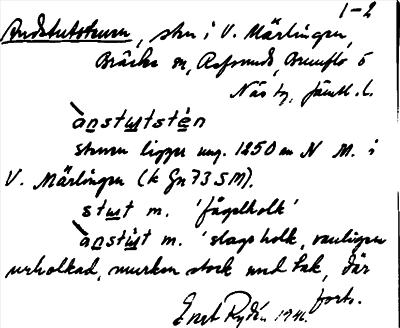 1-2
Andstutstenen, sten i V. Märlingen,
Bräcke sn, Refsunds, Brunflo o
Näs tg, Jämtl. l.
ànstutstén
stenen ligger ung. 1250 m N M. i
V. Märlingen (k Gn 73 SM).
stut m. 'fågelholk'
ànstùt m. 'slags holk, vanligen
urholkad, murken stock med tak, där
forts.
Enst Rydé. 1941.